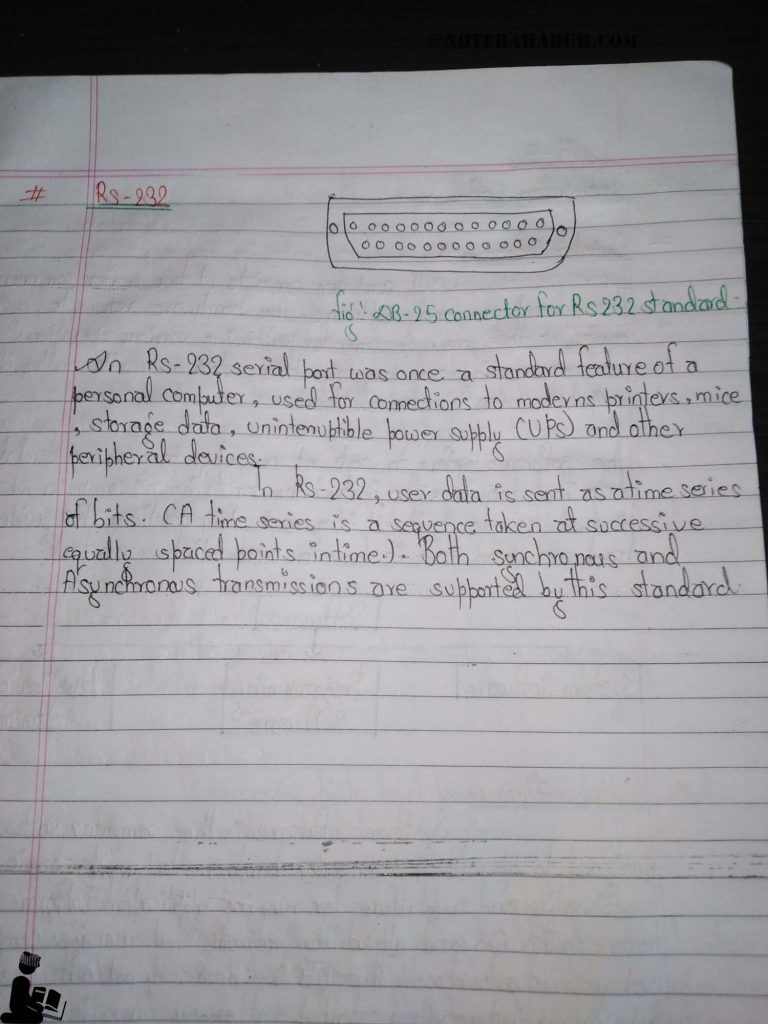 ©NOTEBAHADUR.COM
# Rs-232
fig: DB-25 connector for Rs232 standard.
An Rs-232 serial port was once a standard feature of a
personal computer, used for connections to moderns printers, mice
, storage data, uninterruptible power supply (UPS) and other
peripheral devices.
In Rs-232, user data is sent as a time series
of bits. (A time series is a sequence taken at successive
equally spaced points in time.). Both synchronous and
Asynchronous transmissions are supported by this standard.